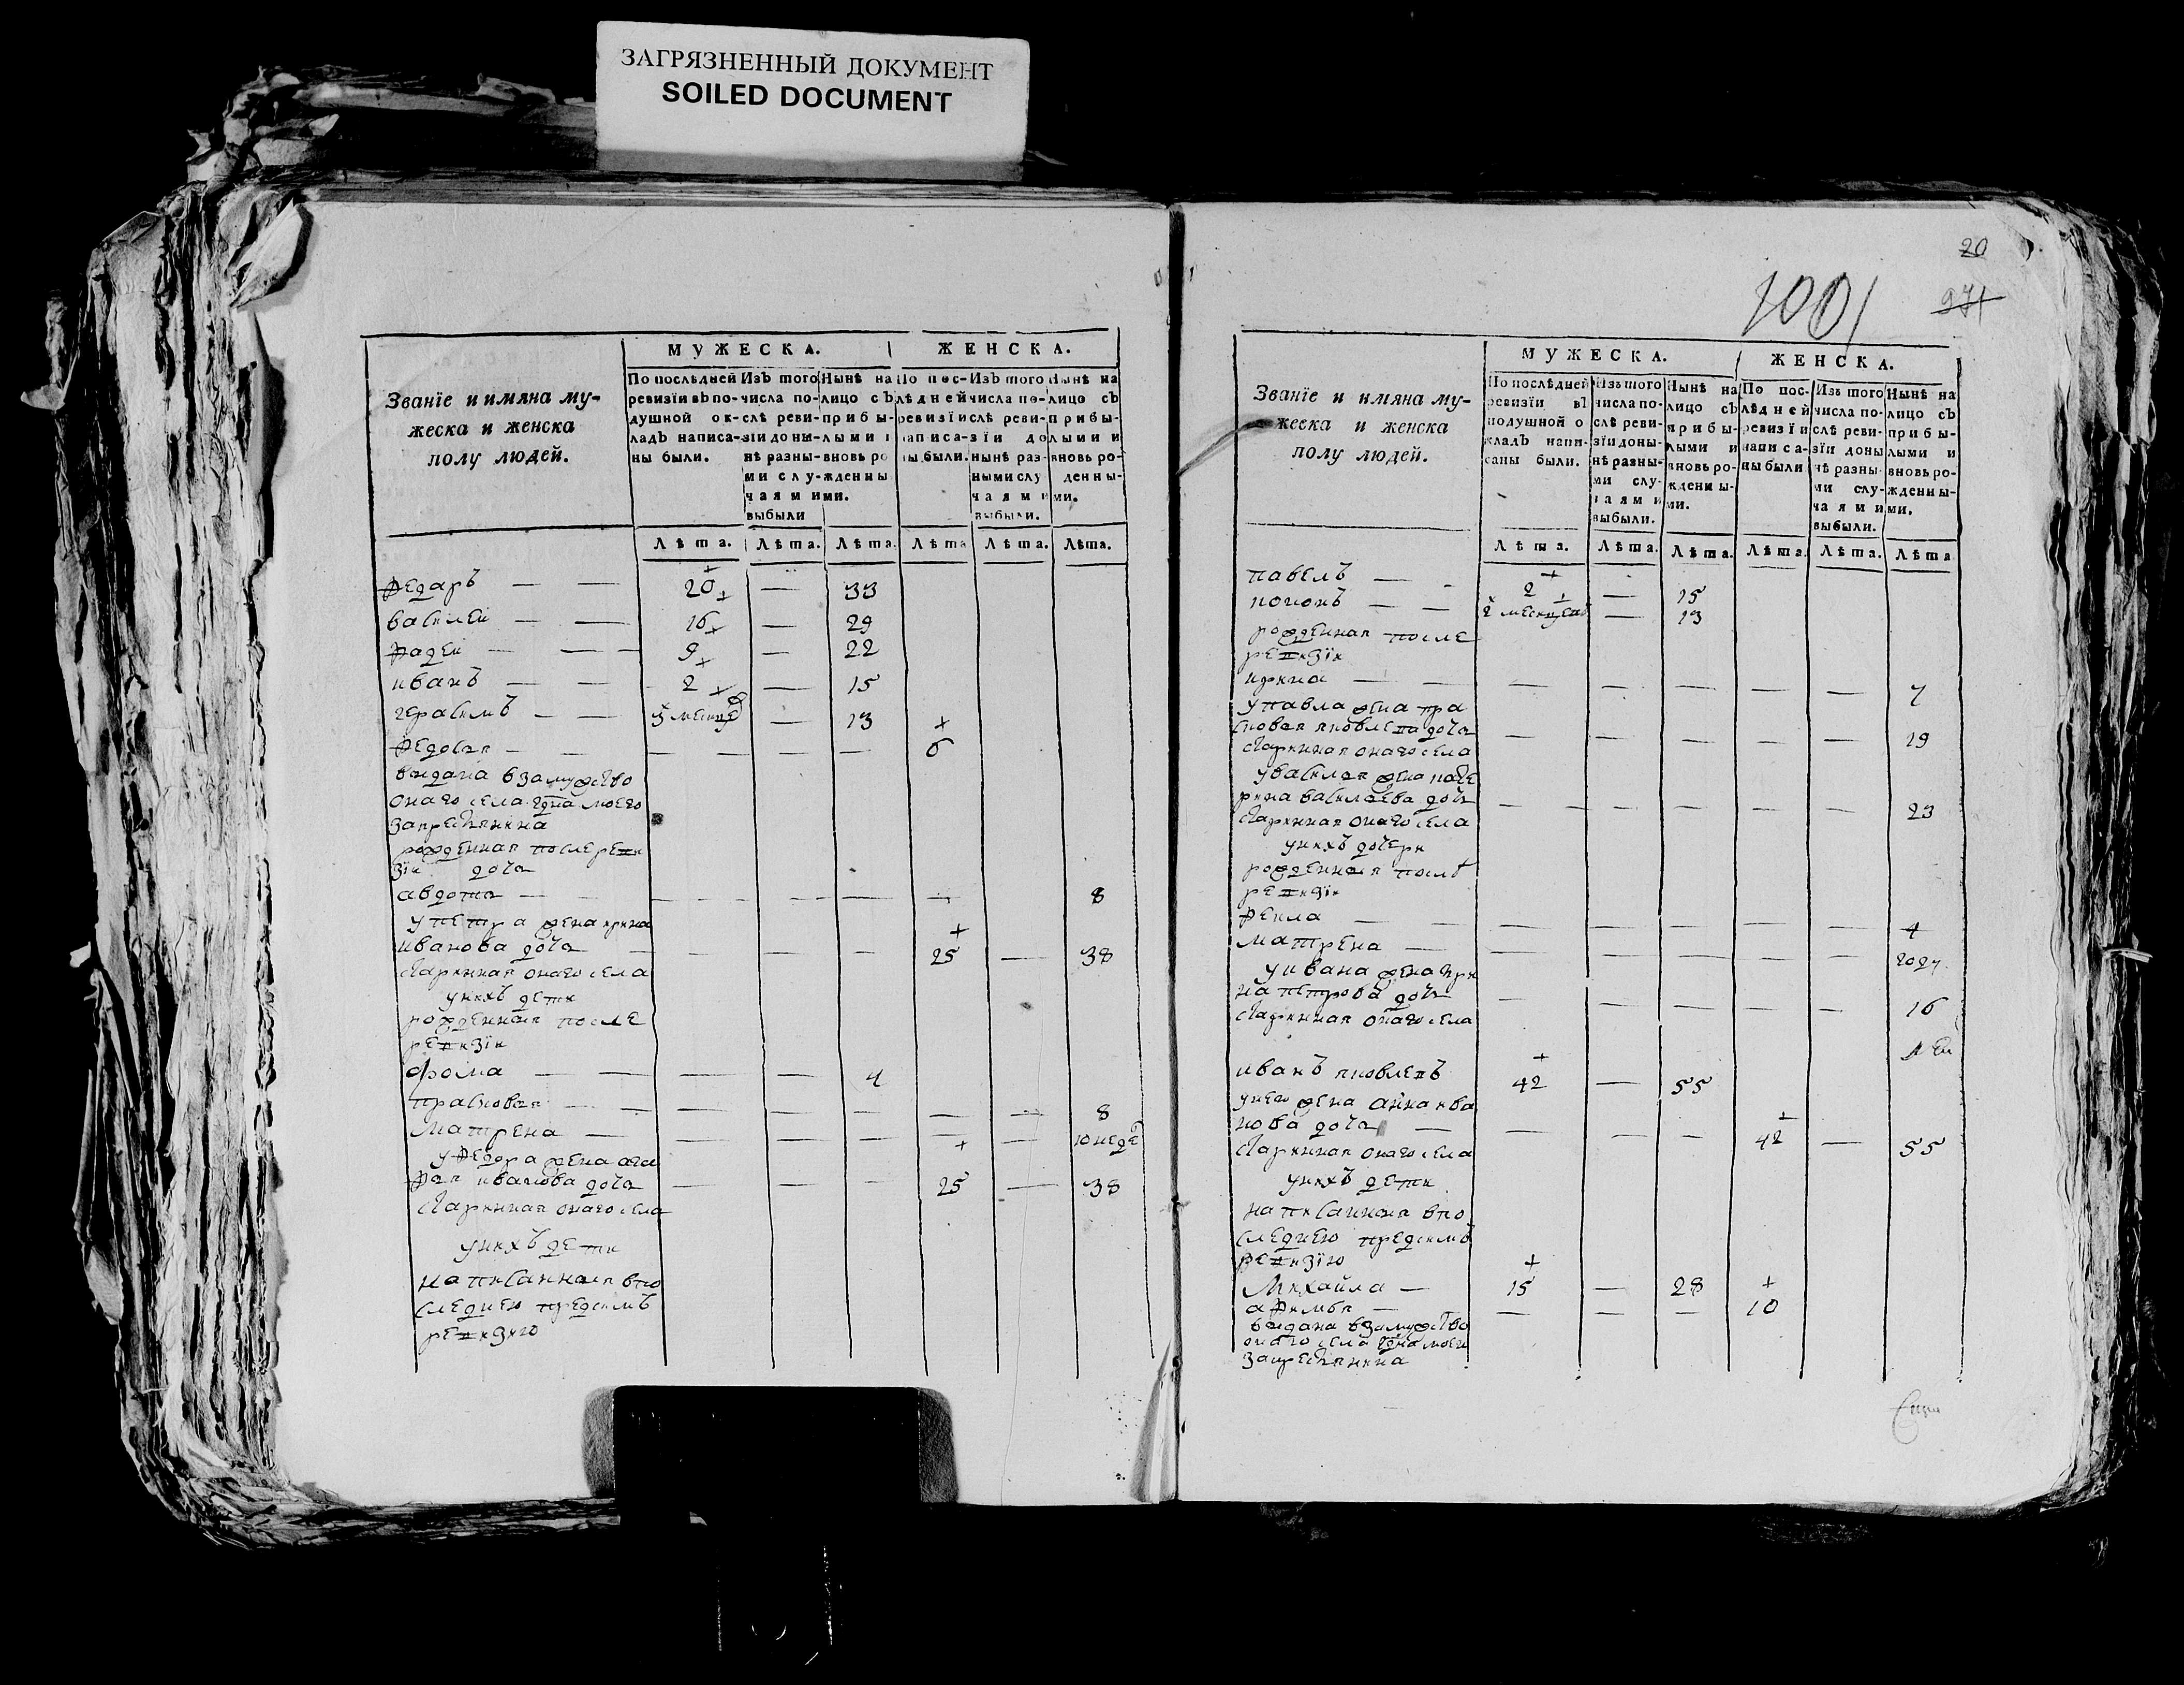 ЗАГРЯЗНЕННЫЙ ДОКУМЕНТ
SOILED DOCUMENT
Званїе и имяна му-
жеска и женска
полу людей.
МУЖЕСКА.
ЖЕНСКА.
По послѣдней
ревизїи въ по-
душной ок-
ладъ написа-
ны были.
Изъ того
числа по-
слѣ реви-
зїи доны-
нѣ разны-
ми слу-
чаями
выбыли
Нынѣ на
лицо съ
прибы-
лыми и
вновь ро
жденны
ми.
По пос-
лѣдней
ревизїи
написа-
ны были.
Изъ того
числа по-
слѣ реви-
зїи до
нынѣ раз-
ными слу
чаями
выбыли.
Нынѣ на
лицо съ
прибы-
лыми и
вновь ро-
денны-
ми.
Лѣта. Лѣта. Лѣта. Лѣта Лѣта. Лѣта.
Федаръ — — 20 — 33
василеи — — 16 — 29
Фадеи — — 9 — 22
иванъ — — 2 — 15
герасимъ — — — 13
Федосья — — — — — 6
выдана взамужство
онаго села гдна моего
закрестьянина
рожденная послереви
зїи доч
авдотья — — — — — 8
упетра жена ирина
иванова доч — — — — 25 — 38
старинная онаго села
унихъ дети
рожденная после
ревизїи
фома — — — — 4
прасковья — — — — — — 8
матрена — — — — — — 10 неде
уФедора жена ага
Фья иванова доч — — — 25 — 38
старинная онаго села
унихъ дети
написанная впо
следнею пред симъ
ревизию
20
971
1001
Званїе и имяна му-
жеска и женска
полу людей.
МУЖЕСКА.
ЖЕНСКА.
По послѣдней
ревизїи въ
подушной о
кладъ напи-
саны были.
Изъ того
числа по-
слѣ реви-
зїи доны-
нѣ разны-
ми слу-
чаями
выбыли.
Нынѣ на
лицо съ
прибы-
лыми и
вновь ро-
жденны-
ми.
По пос-
лѣдней
ревизїи
написа-
ны были
Изъ того
числа по-
слѣ реви-
зїи доны
нѣ разны-
ми слу-
чаями
выбыли.
Нынѣ на
лицо съ
прибы-
лыми и
вновь ро-
жденны-
ми.
Лѣта. Лѣта. Лѣта. Лѣта. Лѣта. Лѣта
павелъ — - 2 — 15
— — 2 месицевъ — 13
рожденная после
ревизїи
ирина — — — — — — — 7
упавла жена пра
сковья яковлева доч — — — — — 19
старинная онаго села
увасилья жена кате
рина васильева доч — — — — — 23
старинная онаго села
унихъ дочери
рожденная послѣ
ревизїи
Фекла — — — — — — 4
матрена — — — — — —
уивана жена ири
на петрова доч — — — — — 16
старинная онаго села
иванъ яковлевъ 42 — 55
унего жена анна ива
нова доч — — — — 42 — 55
старинная онаго села
унихъ дети
написанная впо
следнею предсимъ
ревизїю
Михайла — 15 — 28
афимья — — — — 10
выдана взамужство
онаго села гдна моего
закрестьянина